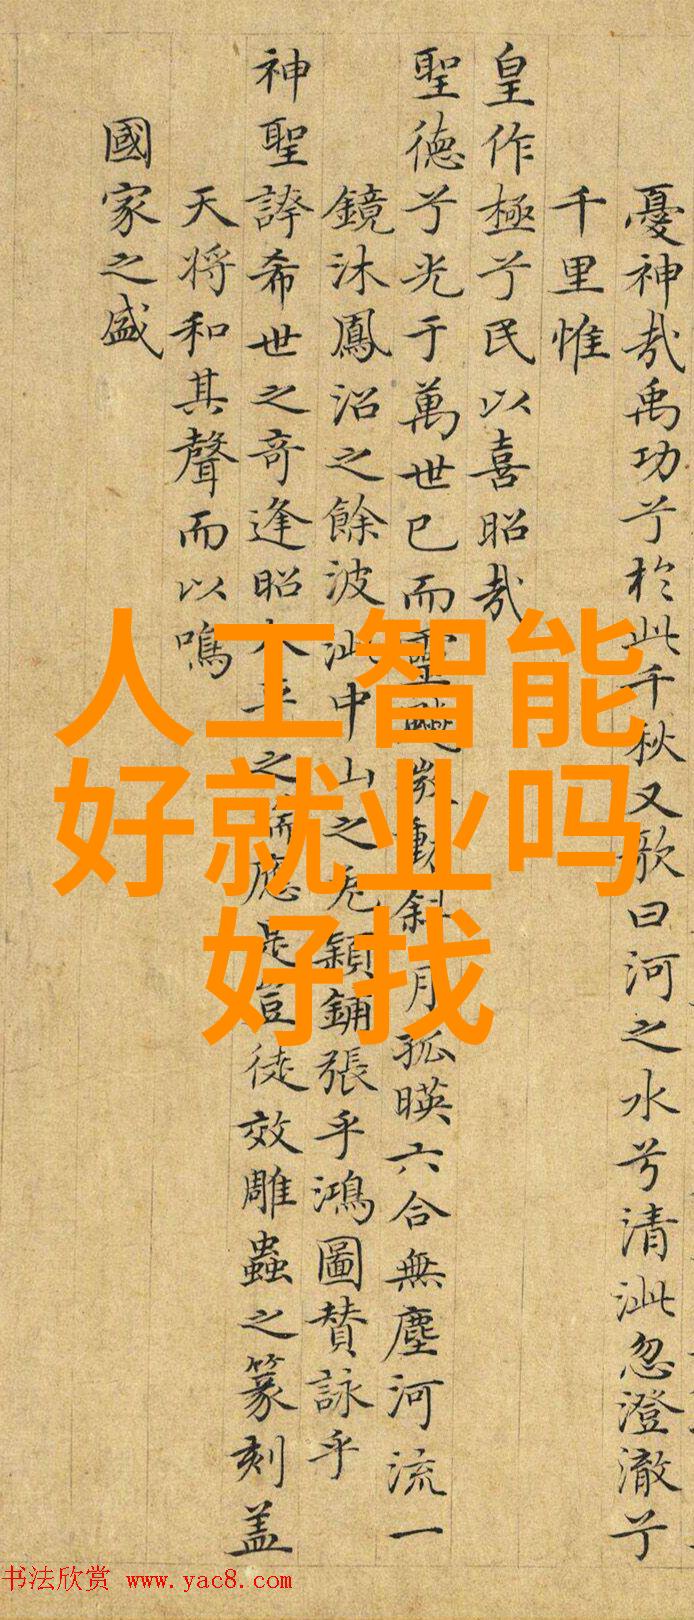 憂神哉禹功兮於此千秋又歌曰河之水兮清泚忽澄澈兮
千里惟
皇作極兮民以喜昭哉
聖德兮光于萬世已而靈飈激動斜月孤暎六合無塵河流一
鏡沐鳳沼之餘波泚中山之兎穎鋪張乎鴻圖贊詠乎
神聖誇希世之奇逢昭太平之瑞應是豈徒效雕蟲之篆刻盖
天将和其聲而以鳴
國家之盛
人工智能
好就业吗
好找
书法欣赏 www.yac8.com